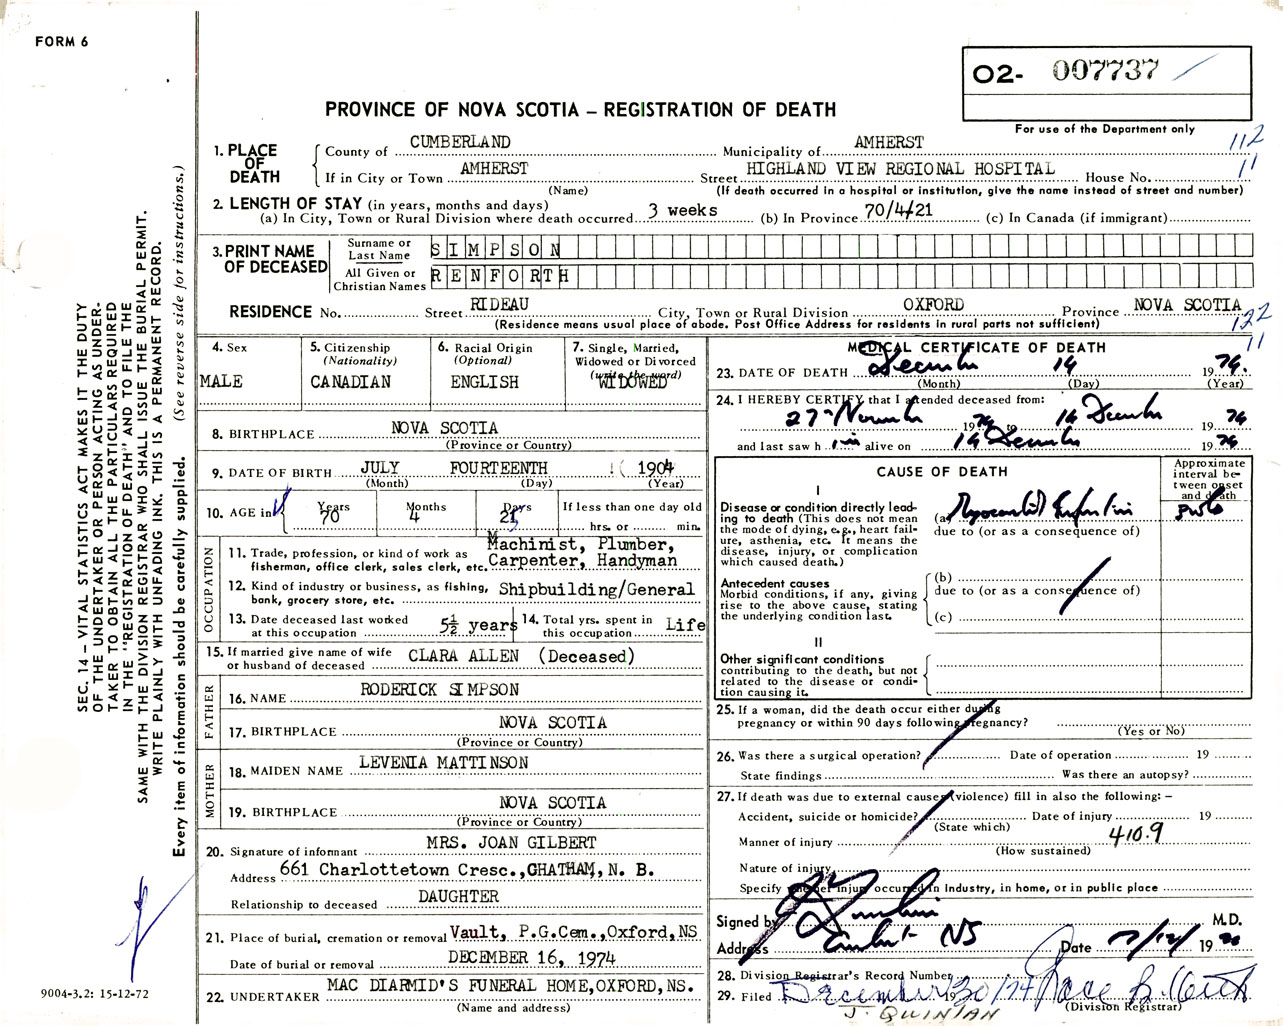 FORM 6
O2- 007737
For use of the Department only
PROVINCE OF NOVA SCOTIA – REGISTRATION OF DEATH
112
11
1. PLACE OF DEATH
County of CUMBERLAND Municipality of AMHERST
If in City or Town AMHERST Street HIGHLAND VIEW REGIONAL HOSPITAL House No.
(Name) (If death occurred in a hospital or institution, give the name instead of street and number)
2. LENGTH OF STAY (in years, months and days)
(a) In City, Town or Rural Division where death occurred 3 weeks (b) In Province 70/4/21 (c) In Canada (if immigrant)
3. PRINT NAME OF DECEASED
Surname or Last Name SIMPSON
All Given or Christian Names RENFORTH
RESIDENCE No. Street RIDEAU City, Town or Rural Division OXFORD Province NOVA SCOTIA
(Residence means usual place of abode. Post Office Address for residents in rural parts not sufficient)
122
11
4. Sex
MALE
5. Citizenship
(Nationality)
CANADIAN
6. Racial Origin
(Optional)
ENGLISH
7. Single, Married,
Widowed or Divorced
(write the word)
WIDOWED
8. BIRTHPLACE NOVA SCOTIA
(Province or Country)
9. DATE OF BIRTH JULY FOURTEENTH 1904
(Month) (Day) (Year)
10. AGE in Years Months Days If less than one day old
70 4 21 hrs. or min.
OCCUPATION
11. Trade, profession, or kind of work as Machinist, Plumber,
fisherman, office clerk, sales clerk, etc. Carpenter, Handyman
12. Kind of industry or business, as fishing, Shipbuilding/General
bank, grocery store, etc.
13. Date deceased last worked at this occupation 5½ years
14. Total yrs. spent in this occupation Life
15. If married give name of wife
or husband of deceased CLARA ALLEN (Deceased)
FATHER
16. NAME RODERICK SIMPSON
17. BIRTHPLACE NOVA SCOTIA
(Province or Country)
MOTHER
18. MAIDEN NAME LEVENIA MATTINSON
19. BIRTHPLACE NOVA SCOTIA
(Province or Country)
20. Signature of informant MRS. JOAN GILBERT
Address 661 Charlottetown Cresc.,CHATHAM, N. B.
Relationship to deceased DAUGHTER
21. Place of burial, cremation or removal Vault, P.G.Cem.,Oxford,NS
Date of burial or removal DECEMBER 16, 1974
22. UNDERTAKER MAC DIARMID'S FUNERAL HOME,OXFORD,NS.
(Name and address)
MEDICAL CERTIFICATE OF DEATH
23. DATE OF DEATH December 14 1974.
(Month) (Day) (Year)
24. I HEREBY CERTIFY that I attended deceased from:
27 November 1974 to 14 December 1974
and last saw him alive on 14 December 1974
CAUSE OF DEATH
Approximate
interval be-
tween onset
and death
I
Disease or condition directly lead-
ing to death (This does not mean
the mode of dying, e.g., heart fail-
ure, asthenia, etc. It means the
disease, injury, or complication
which caused death.)
(a) Myocardial Infarction
due to (or as a consequence of)
Antecedent causes
Morbid conditions, if any, giving
rise to the above cause, stating
the underlying condition last.
(b)
due to (or as a consequence of)
(c)
II
Other significant conditions
contributing to the death, but not
related to the disease or condi-
tion causing it.
25. If a woman, did the death occur either during
pregnancy or within 90 days following pregnancy?
(Yes or No)
26. Was there a surgical operation? Date of operation 19
State findings Was there an autopsy?
27. If death was due to external causes (violence) fill in also the following: –
Accident, suicide or homicide? Date of injury 19
(State which)
Manner of injury 410.9
(How sustained)
Nature of injury
Specify whether injury occurred in industry, in home, or in public place
Signed by M.D.
Address Amherst NS Date 19
28. Division Registrar's Record Number
29. Filed December 30/74
(Division Registrar)
J. QUINLAN
SEC. 14 – VITAL STATISTICS ACT MAKES IT THE DUTY
OF THE UNDERTAKER OR PERSON ACTING AS UNDER-
TAKER TO OBTAIN ALL THE PARTICULARS REQUIRED
IN THE "REGISTRATION OF DEATH" AND TO FILE THE
SAME WITH THE DIVISION REGISTRAR WHO SHALL ISSUE THE BURIAL PERMIT.
WRITE PLAINLY WITH UNFADING INK. THIS IS A PERMANENT RECORD.
Every item of information should be carefully supplied. (See reverse side for instructions.)
9004-3.2: 15-12-72